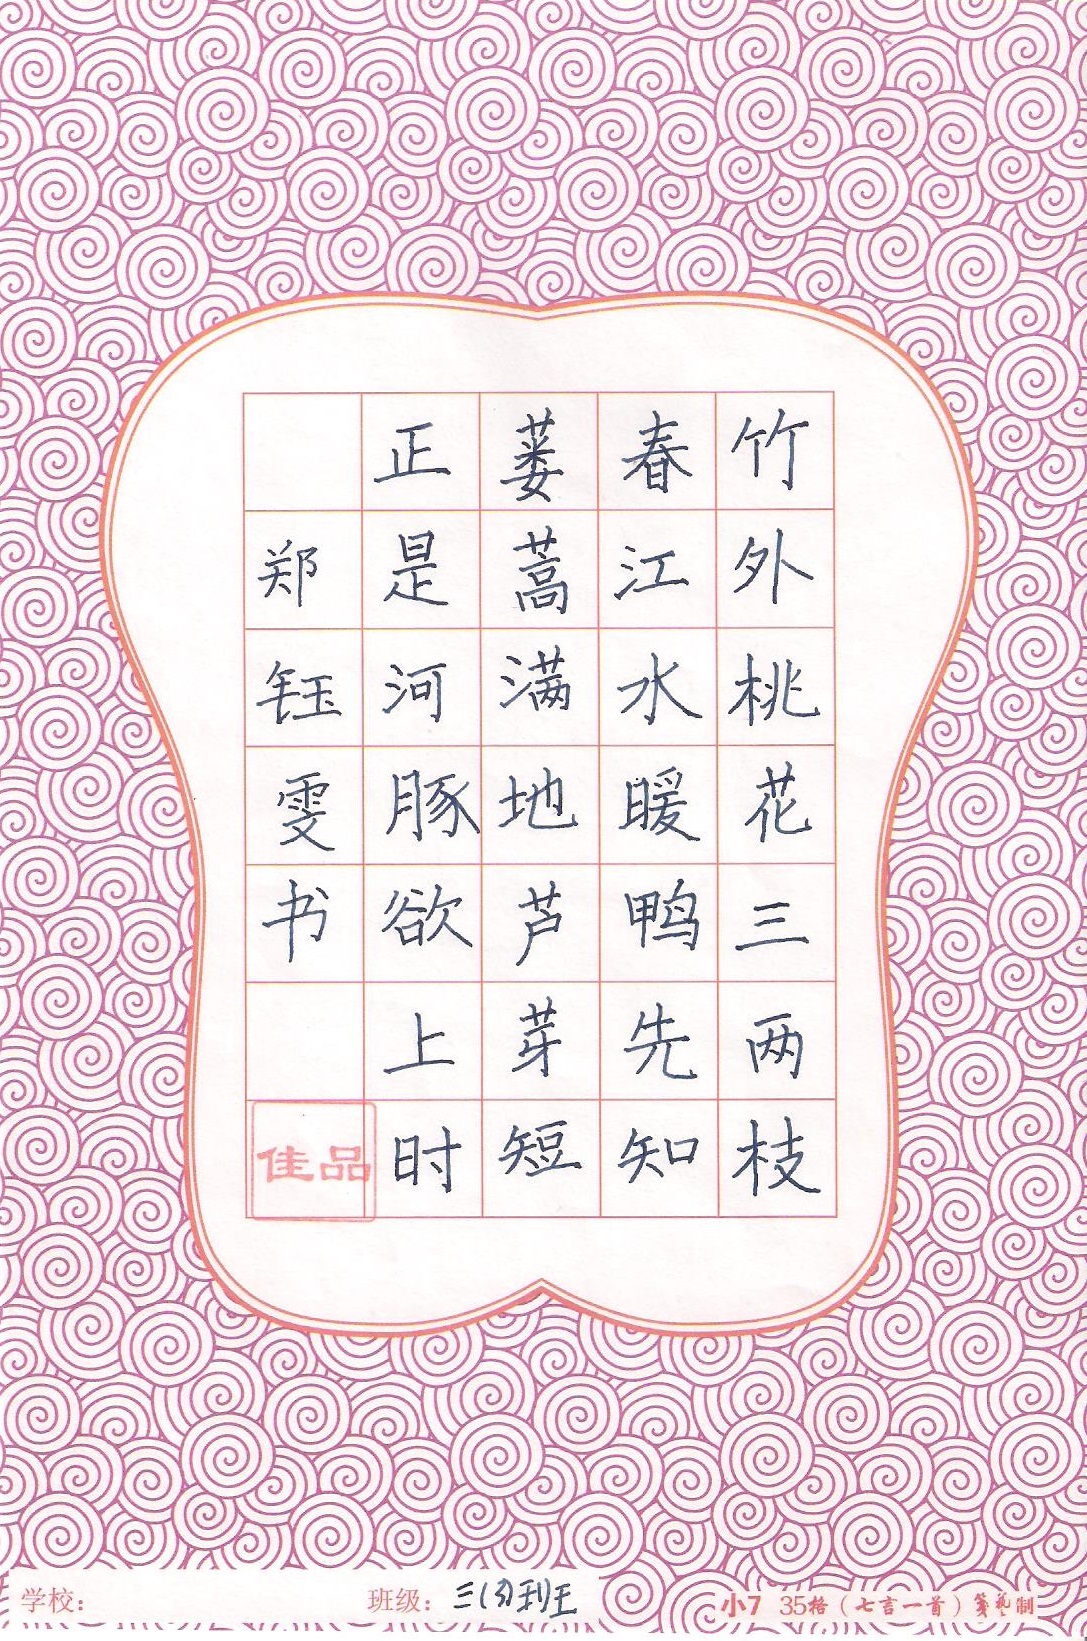 竹外桃花三两枝
春江水暖鸭先知
蒌蒿满地芦芽短
正是河豚欲上时
郑钰雯书
佳品
学校：
班级：三
小7 35格（七言一首）笺艺制